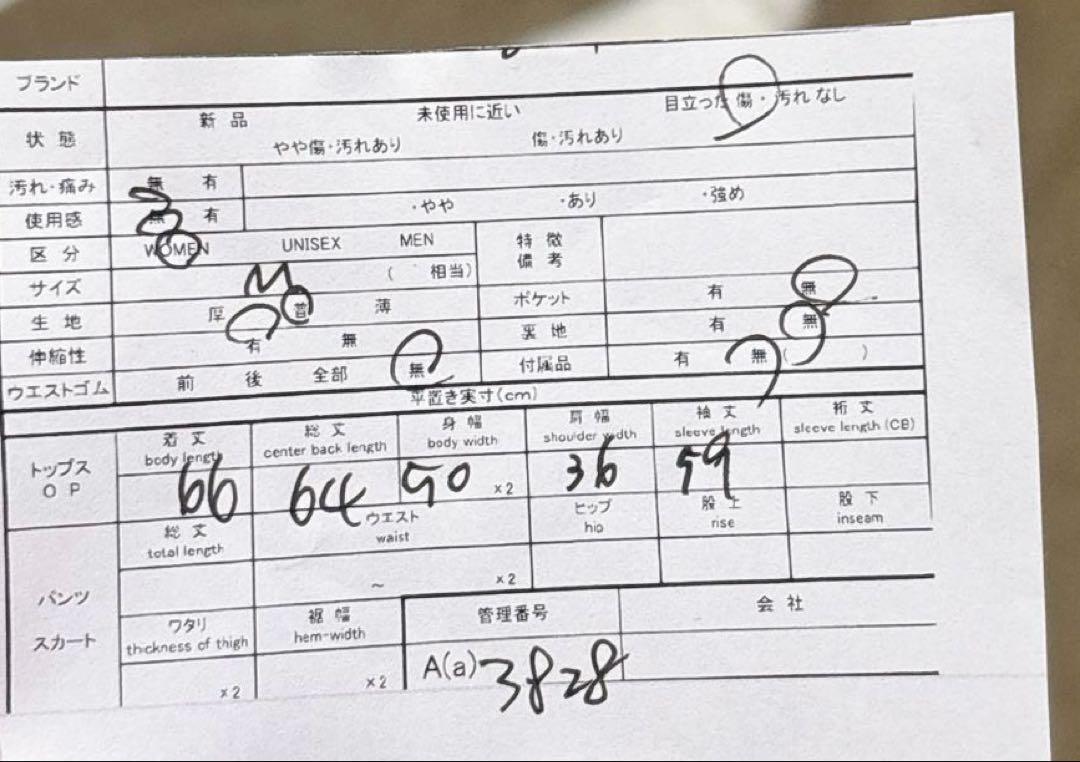 ブランド
状態 新品 未使用に近い 目立った傷・汚れなし
やや傷・汚れあり 傷・汚れあり
汚れ・痛み 無 有
使用感 無 有 ・やや ・あり ・強め
区分 WOMEN UNISEX MEN 特徴備考
サイズ M ( 相当)
生地 厚 普 薄 ポケット 有 無
伸縮性 有 無 裏地 有 無
ウエストゴム 前 後 全部 無 付属品 有 無 ( )
平置き実寸(cm)
トップス OP
着丈 総丈 身幅 肩幅 袖丈 裄丈
body length center back length body width shoulder width sleeve length sleeve length (CB)
66 64 50 ×2 36 59
パンツ スカート
総丈 ウエスト ヒップ 股上 股下
total length waist hip rise inseam
～ ×2
ワタリ 裾幅 管理番号 会社
thickness of thigh hem-width
×2 ×2 A(a) 3828